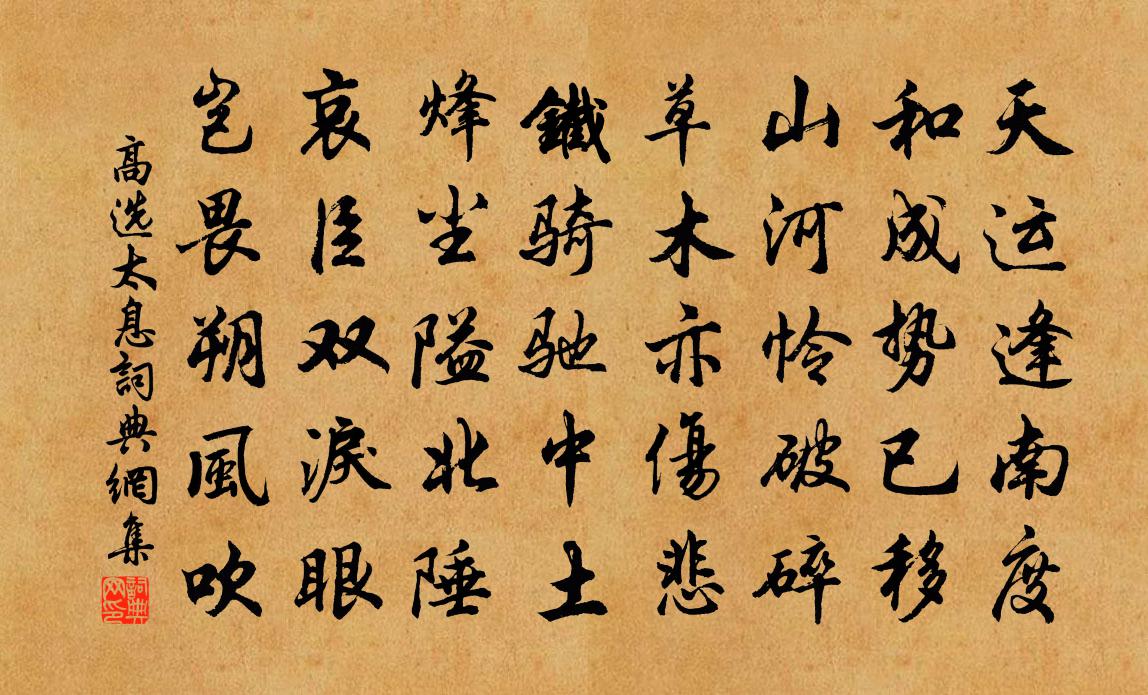 天运逢南度
和成势已移
山河怜破碎
草木亦傷悲
鐵骑驰中土
烽尘隘北陲
哀臣双淚眼
岂畏朔風吹
高选太息詞典網集
詞典网印